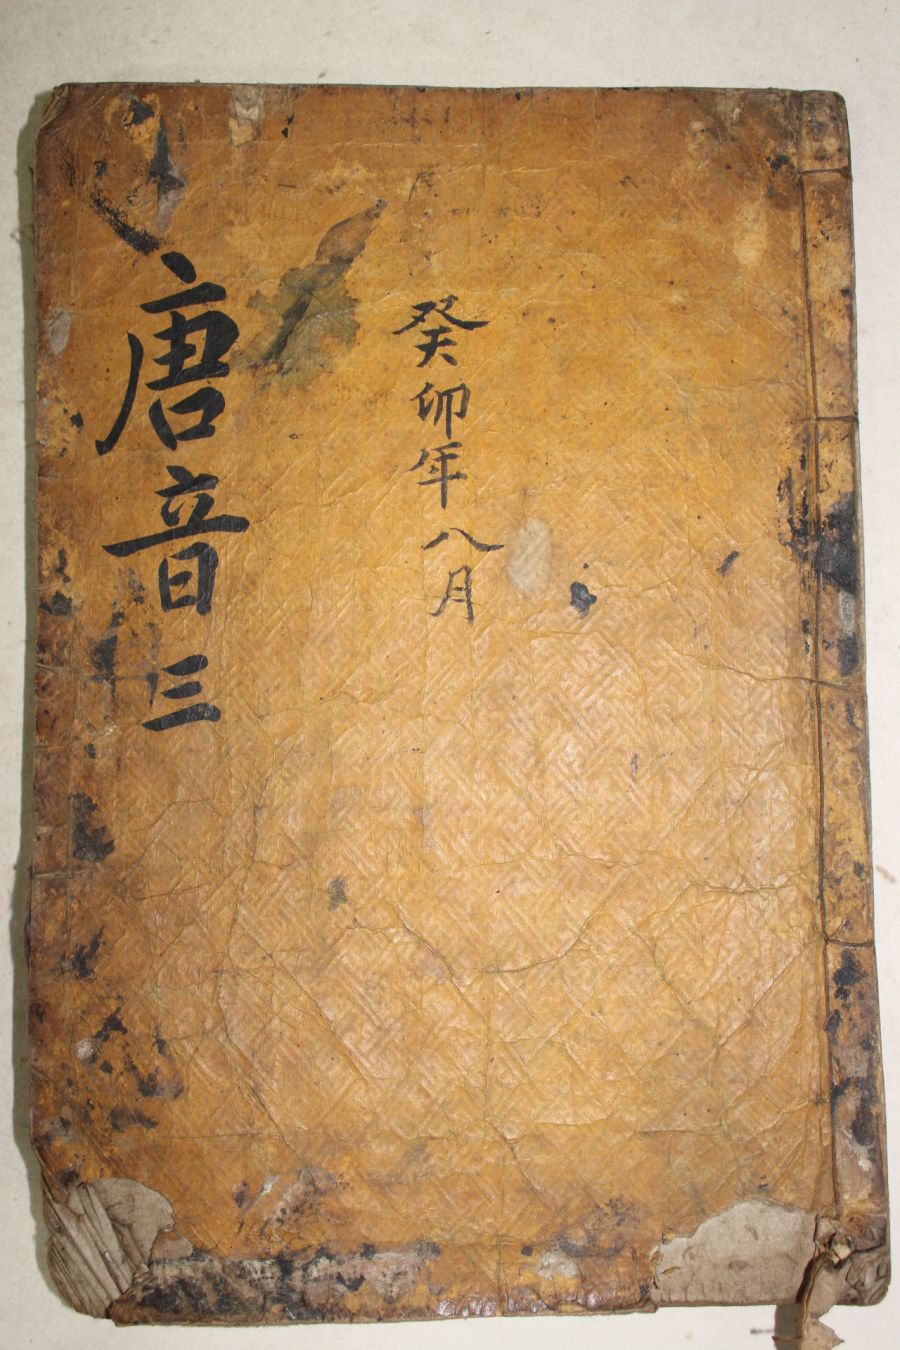 癸卯年八月
唐音三